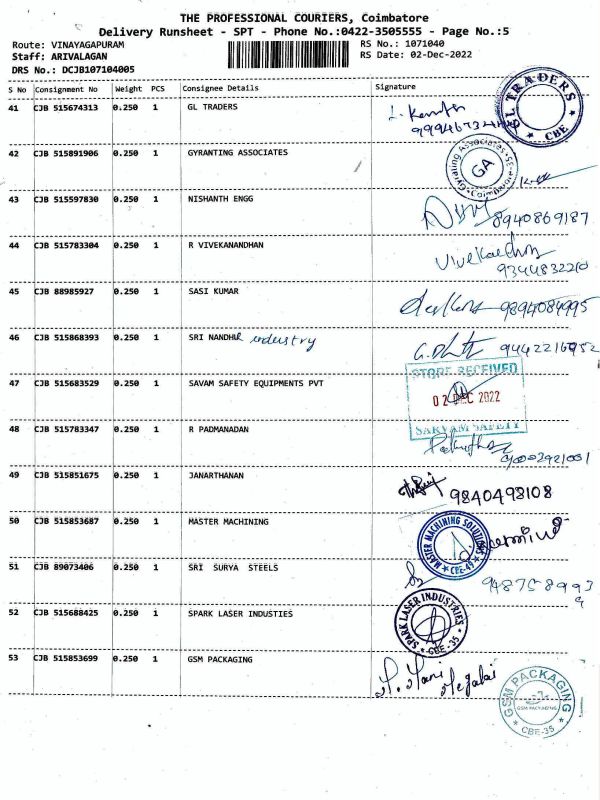 THE PROFESSIONAL COURIERS, Coimbatore
Delivery Runsheet - SPT - Phone No.:0422-3505555 - Page No.:5
Route: VINAYAGAPURAM RS No.: 1071040
Staff: ARIVALAGAN RS Date: 02-Dec-2022
DRS No.: DCJB107104005
S No Consignment No Weight PCS Consignee Details Signature
41 CJB 515674313 0.250 1 GL TRADERS
GL TRADERS CBE
42 CJB 515891906 0.250 1 GYRANTING ASSOCIATES
Gyrating Associates GA Coimbatore-35
43 CJB 515597830 0.250 1 NISHANTH ENGG
8940869187
44 CJB 515783304 0.250 1 R VIVEKANANDHAN
9344832210
45 CJB 88985927 0.250 1 SASI KUMAR
9894084995
46 CJB 515868393 0.250 1 SRI NANDHU industry
9442216952
47 CJB 515683529 0.250 1 SAVAM SAFETY EQUIPMENTS PVT
STORE RECEIVED
02 DEC 2022
SARVAM SAFETY
48 CJB 515783347 0.250 1 R PADMANADAN
49 CJB 515851675 0.250 1 JANARTHANAN
9840498108
50 CJB 515853687 0.250 1 MASTER MACHINING
MASTER MACHINING SOLUTIONS CBE-49
51 CJB 89073406 0.250 1 SRI SURYA STEELS
52 CJB 515688425 0.250 1 SPARK LASER INDUSTIES
SPARK LASER INDUSTRIES CBE-35
53 CJB 515853699 0.250 1 GSM PACKAGING
GSM PACKAGING
GSM PACKAGING
CBE-35